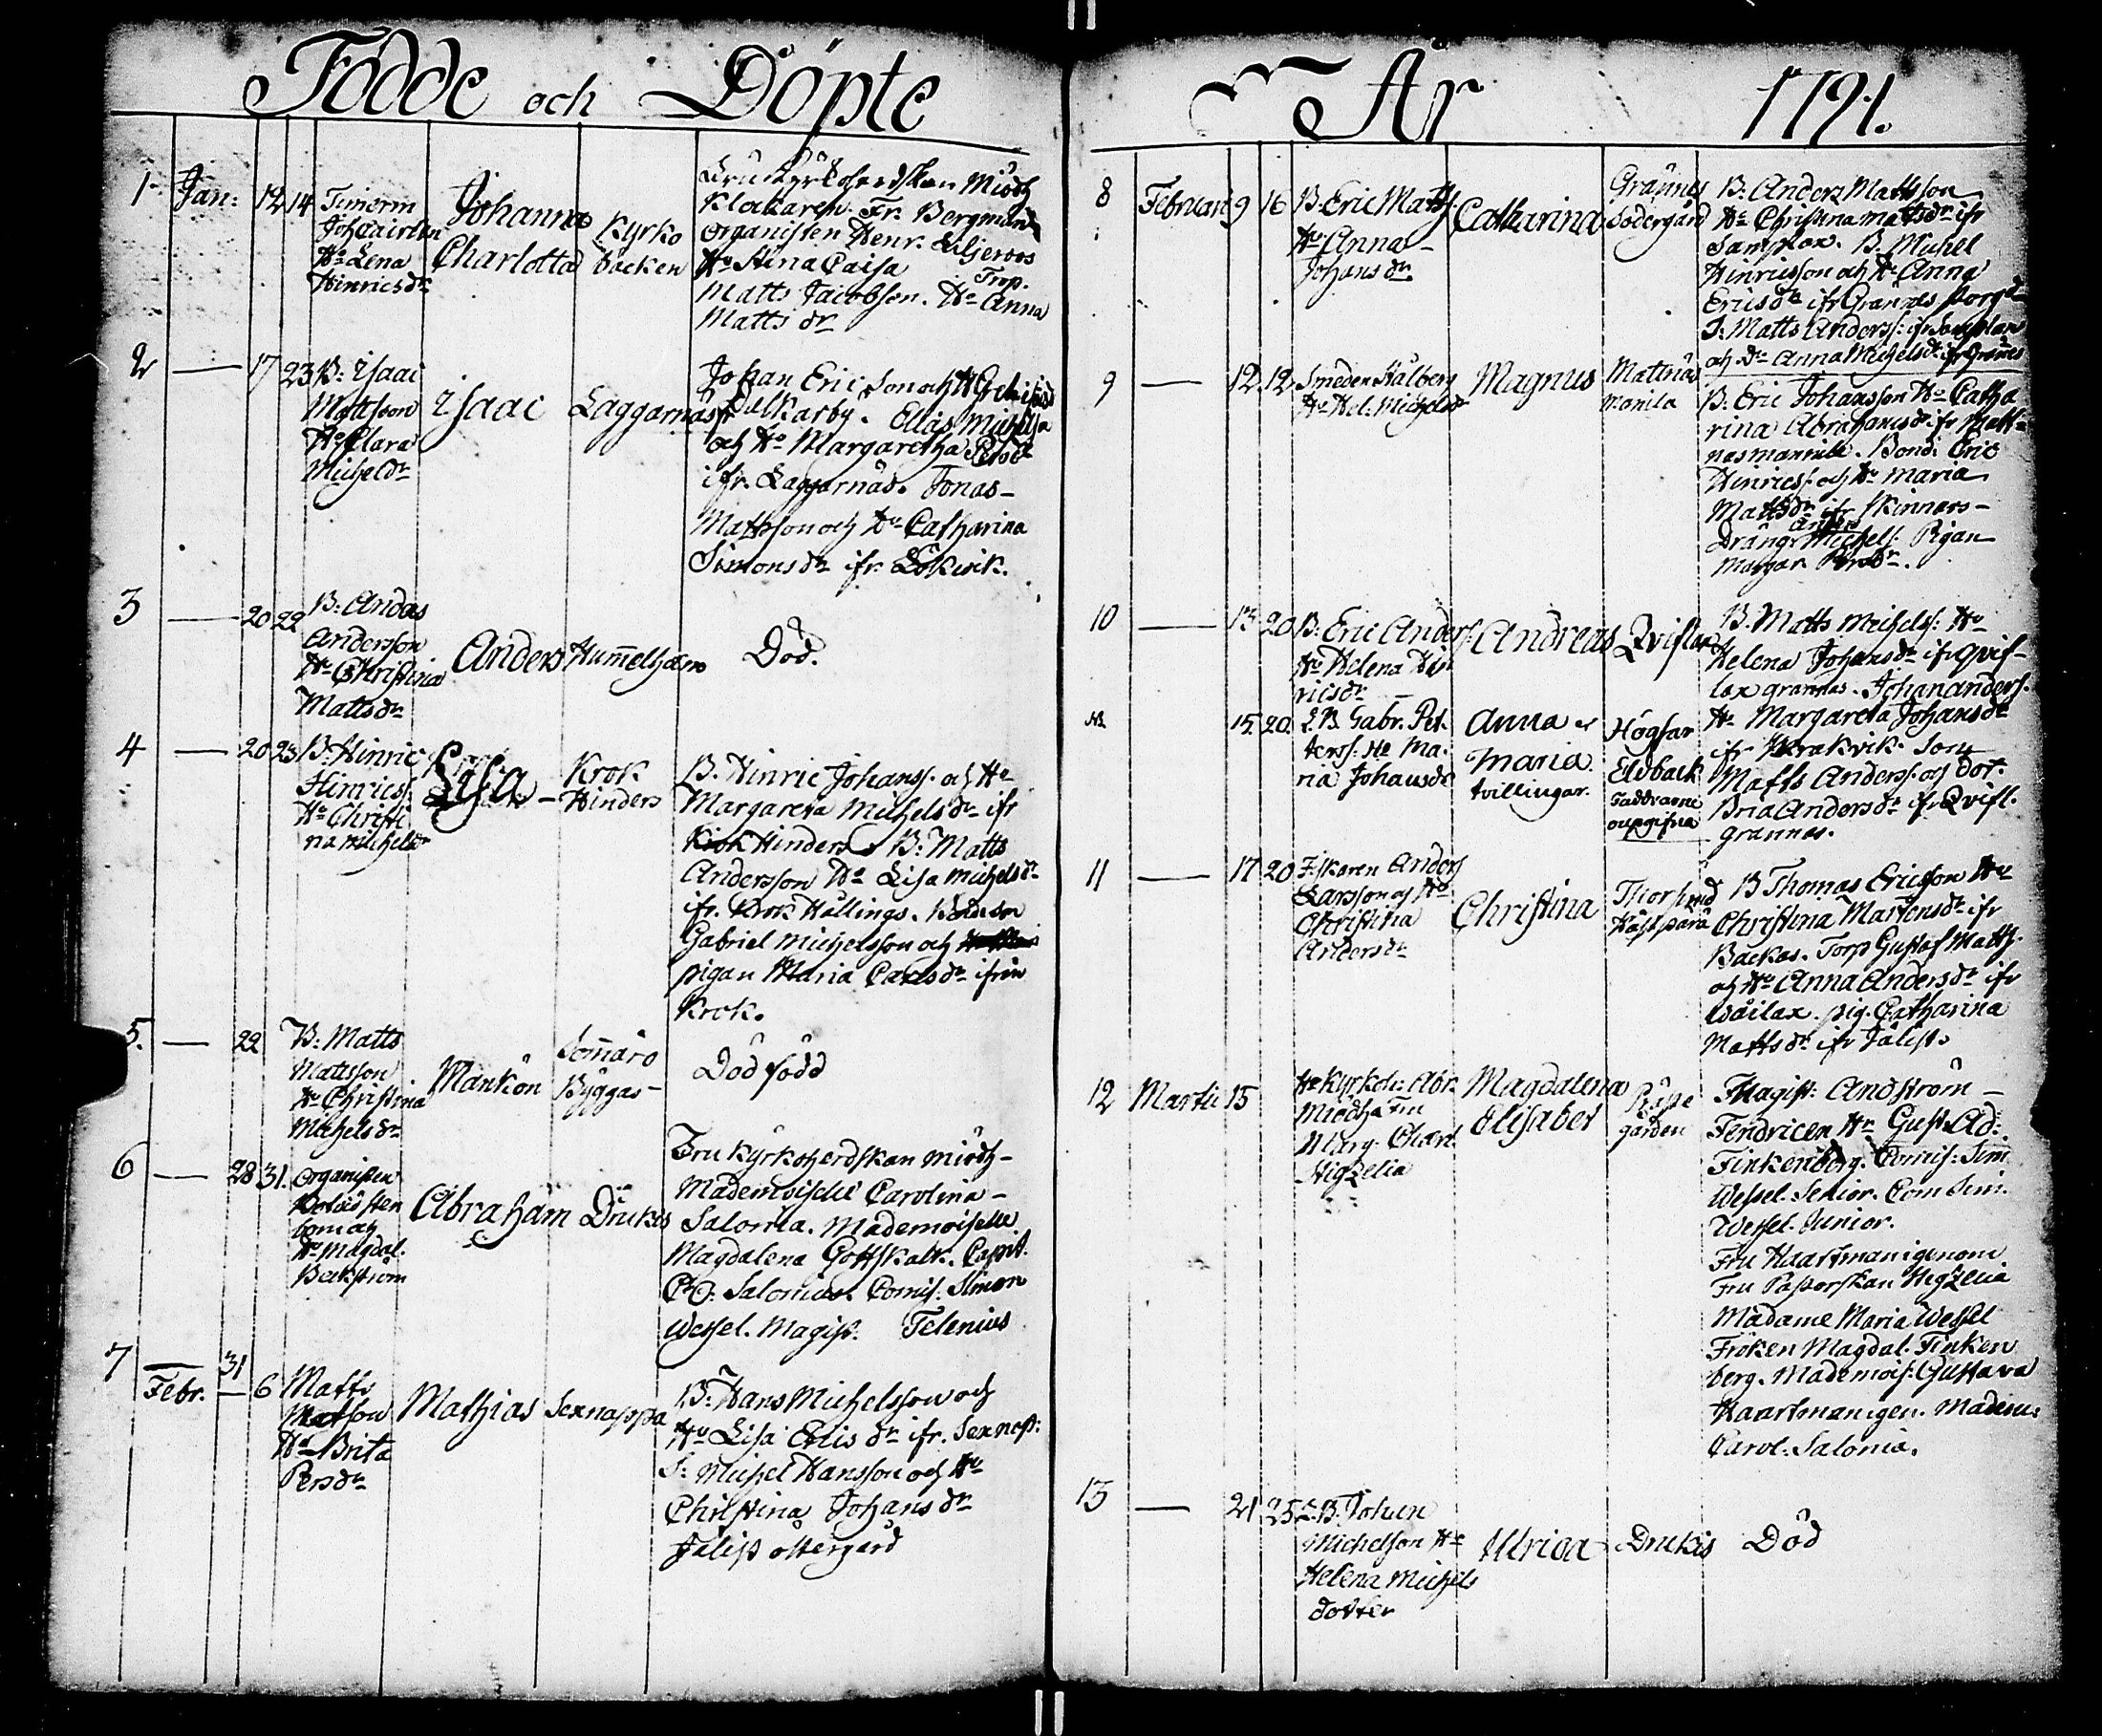 Födde och Döpte
År 1791.
1 Jan: 12 14
Hu Lena
Hinricsdr
Johanna
Charlotta
Kyrko
backen
Klockaren Fr. Bergman
Organisten Henr. Liljeroos
Hu Stina Caisa
Matts Jacobsson. Torp. Hu Anna
Matts dr
2 — 17 23
B: Isaac
Mattsson
Hu Clara
Michelsdr
Isaac
Laggarnäs
Johan Ericsson och Hu
Dalkarby. Elias
och Hu Margaretha Persdr
ifr. Laggarnäs. Jonas
Mattsson och Hu Catharina
Simonsdr ifr. Lökvik.
3 — 20 22
B: Anders
Andersson
Hu Christina
Mattsdr
Anders
Hummelholm
Död.
4 — 20 23
B: Hinric
Hinricss.
Hu Christi
na Michelsdr
Lisa
Krok
Hinders
B. Hinric Johanss. och Hu
Margareta Michelsdr ifr
Krok Hinders B: Matts
Andersson Hu Lisa Michelsdr
ifr. Krok Hällings. Bondeson
Gabriel Michelsson och
pigan Maria Carlsdr ifrån
Krok.
5. — 22
B: Matts
Mattsson
Hu Christina
Michelsdr
Mankön
Som̄arö
Byggas
Död född
6 — 28 31.
Organisten
Hu Magdal.
Beckström
Abraham
Drukis
Fru Kyrkoherdskan Miödh
Mademoiselle Carolina
Salonia. Mademoiselle
Magdalena Gottskalk. Capit.
Salonius. Comis: Simon
Wessel. Magist. Telenius
7 — 31
Febr. — 6
Matts
Matsson
Hu Brita
Persdr
Mathias
Sexnappa
B: Hans Michelsson och
Hu Lisa Ericsdr ifr. Sexnap:
S: Michel Hansson och Hu
Christina Johansdr
Jälist Östergård
8 Februari 9 16
B. Eric Matss.
Hu Anna
Johansdr
Catharina
Grännäs
Södergård
B: Anders Mattsson
Hu Christina Mattsdr ifr
Samplax. B. Michel
Hinricsson och Hu Anna
Ericsdr ifr Grannäs Norrg.
D. Matts Anderss: ifr Samplax
och Dr Anna Michelsdr ifr Grännäs
9 — 12 12
Smeden Stålberg
Hu Hel: Michelsdr
Magnus
Mattnäs
Manila
B: Eric Johansson Hu Catha
rina Abrahamsdr ifr Matt-
näsmanila. Bond: Eric
Hinricss. och Hu Maria
Mattsdr ifr Skinnars
Dräng Anders Michelss: Pigan
Margar. Persdr.
10 — 13 20
B: Eric Anderss:
Hu Helena Hin
ricsdr
Andreas
Qviflax
B. Matts Michelss: Hu
Helena Johansdr ifr Qvif-
lax grannas. Johan Anderss.
Hu Margareta Johansdr
ifr Krakvik. Son
Matts Anderss. och dot.
Brita Andersdr ifr Qvifl.
grannas.
NB. 15. 20.
L.B. Gabr. Pet
terss. Hu Ma.
ria Johansdr
Anna och
Maria.
tvillingar.
Högsar
Eldback
Faddrarne
oupgifna
11 — 17 20
Fiskaren Anders
Larsson och Hu
Christina
Andersdr
Christina
B Thomas Ericsson Hu
Christina Mårtensdr ifr
Backas. Torp Gustaf Matts.
och Hu Anna Andersdr ifr
pig. Catharina
Mattsdr ifr Jälist.
12 Martii 15
Hr Kyrkoh: Abr.
Miödh Fru
Marg. Charl.
Higzelia
Magdalena
Elisabet
Präste
gården
Magist: Andström
Fendricen Hr Gust: Ad:
Finkenberg. Comis: Sim
Wessel. Senior. Com Sim.
Wessel. Junior.
Fru Haartman igenom
Fru Pastorskan Higzelia
Madame Maria Wessel
Fröken Magdal. Finken
berg. Mademois: Gustava
Haartman igen. Madem:
Carol. Salonia.
13 — 21 25
L.B. Johan
Michelsson Hu
Helena Michels
dotter
Ulrica
Drukis
Död